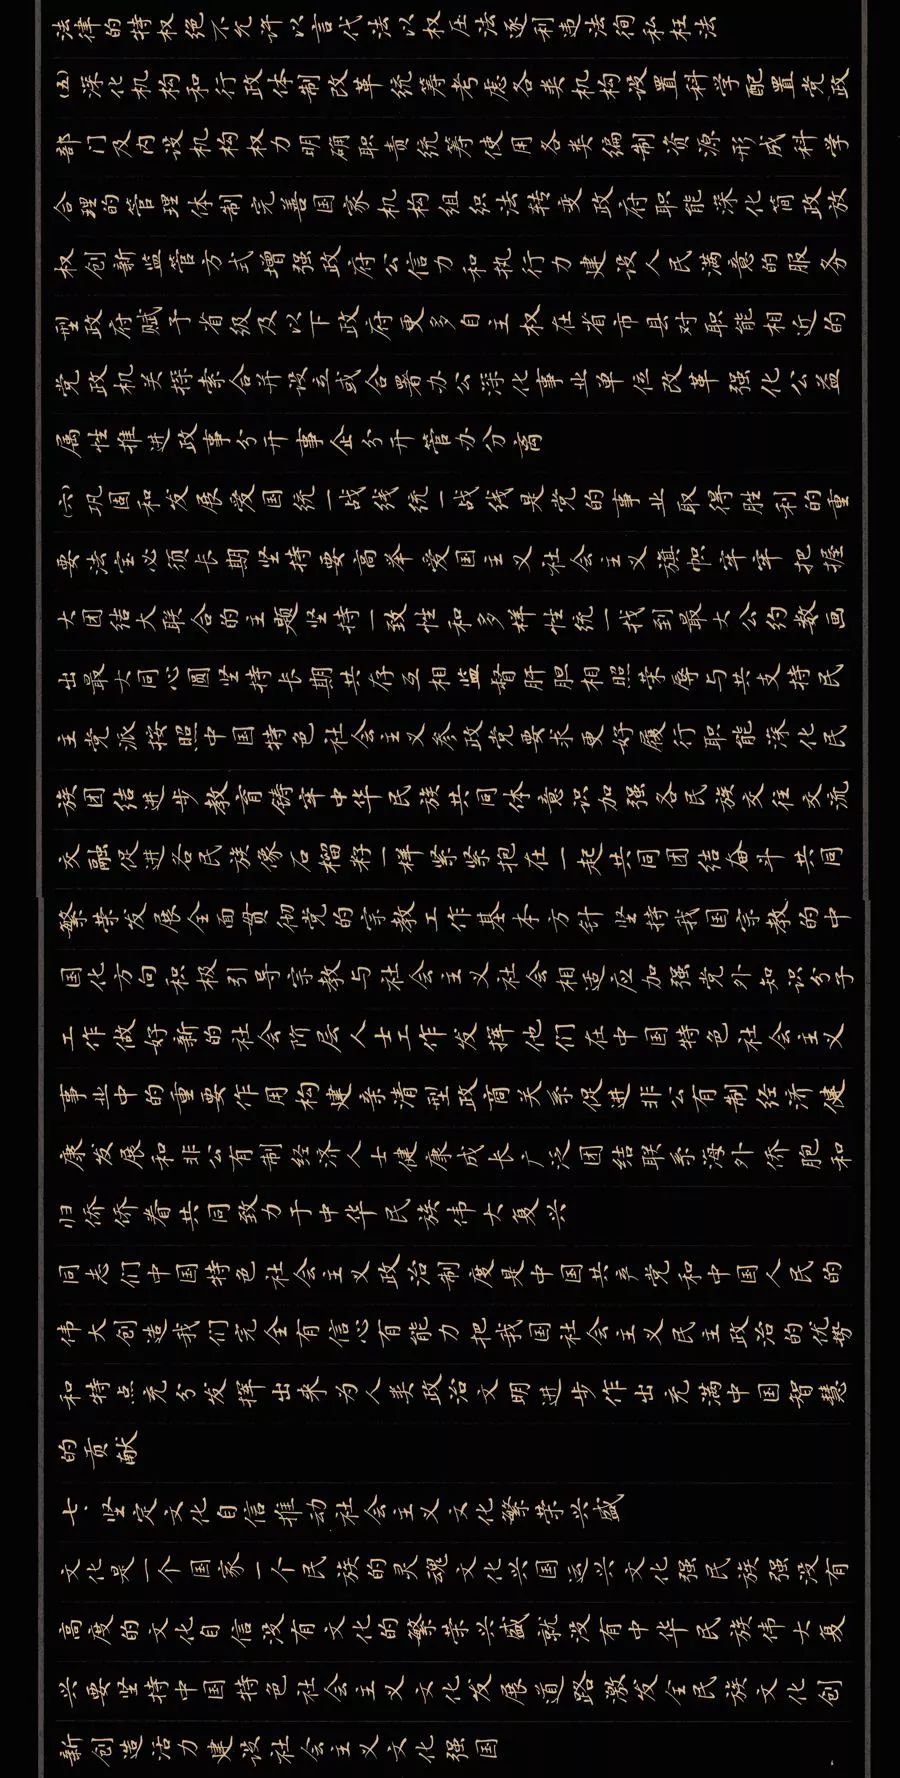 法律的特权绝不允许以言代法以权压法逐利违法徇私枉法
(五)深化机构和行政体制改革统筹考虑各类机构设置科学配置党政
部门及内设机构权力明确职责统筹使用各类编制资源形成科学
合理的管理体制完善国家机构组织法转变政府职能深化简政放
权创新监管方式增强政府公信力和执行力建设人民满意的服务
型政府赋予省级及以下政府更多自主权在省市县对职能相近的
党政机关探索合并设立或合署办公深化事业单位改革强化公益
属性推进政事分开事企分开管办分离
(六)巩固和发展爱国统一战线统一战线是党的事业取得胜利的重
要法宝必须长期坚持要高举爱国主义社会主义旗帜牢牢把握
大团结大联合的主题坚持一致性和多样性统一找到最大公约数画
出最大同心圆坚持长期共存互相监督肝胆相照荣辱与共支持民
主党派按照中国特色社会主义参政党要求更好履行职能深化民
族团结进步教育铸牢中华民族共同体意识加强各民族交往交流
交融促进各民族像石榴籽一样紧紧抱在一起共同团结奋斗共同
繁荣发展全面贯彻党的宗教工作基本方针坚持我国宗教的中
国化方向积极引导宗教与社会主义社会相适应加强党外知识分子
工作做好新的社会阶层人士工作发挥他们在中国特色社会主义
事业中的重要作用构建亲清型政商关系促进非公有制经济健
康发展和非公有制经济人士健康成长广泛团结联系海外侨胞和
归侨侨眷共同致力于中华民族伟大复兴
同志们中国特色社会主义政治制度是中国共产党和中国人民的
伟大创造我们完全有信心有能力把我国社会主义民主政治的优势
和特点充分发挥出来为人类政治文明进步作出充满中国智慧
的贡献
七、坚定文化自信推动社会主义文化繁荣兴盛
文化是一个国家一个民族的灵魂文化兴国运兴文化强民族强没有
高度的文化自信没有文化的繁荣兴盛就没有中华民族伟大复
兴要坚持中国特色社会主义文化发展道路激发全民族文化创
新创造活力建设社会主义文化强国